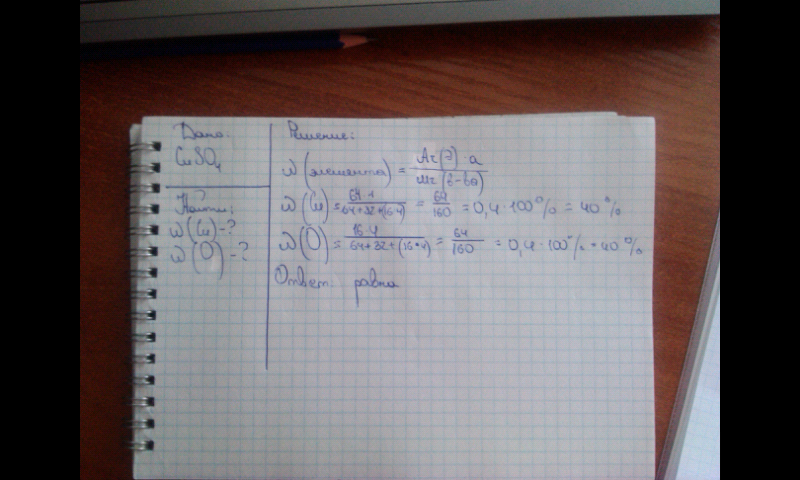 Дано:
CuSO₄
Найти:
ω(Cu)-?
ω(O)-?
Решение:
ω(элемента) = Ar(э)·a / Mr(в-ва)
ω(Cu) = 64·1 / 64+32+(16·4) = 64/160 = 0,4·100% = 40%
ω(O) = 16·4 / 64+32+(16·4) = 64/160 = 0,4·100% = 40%
Ответ: равна